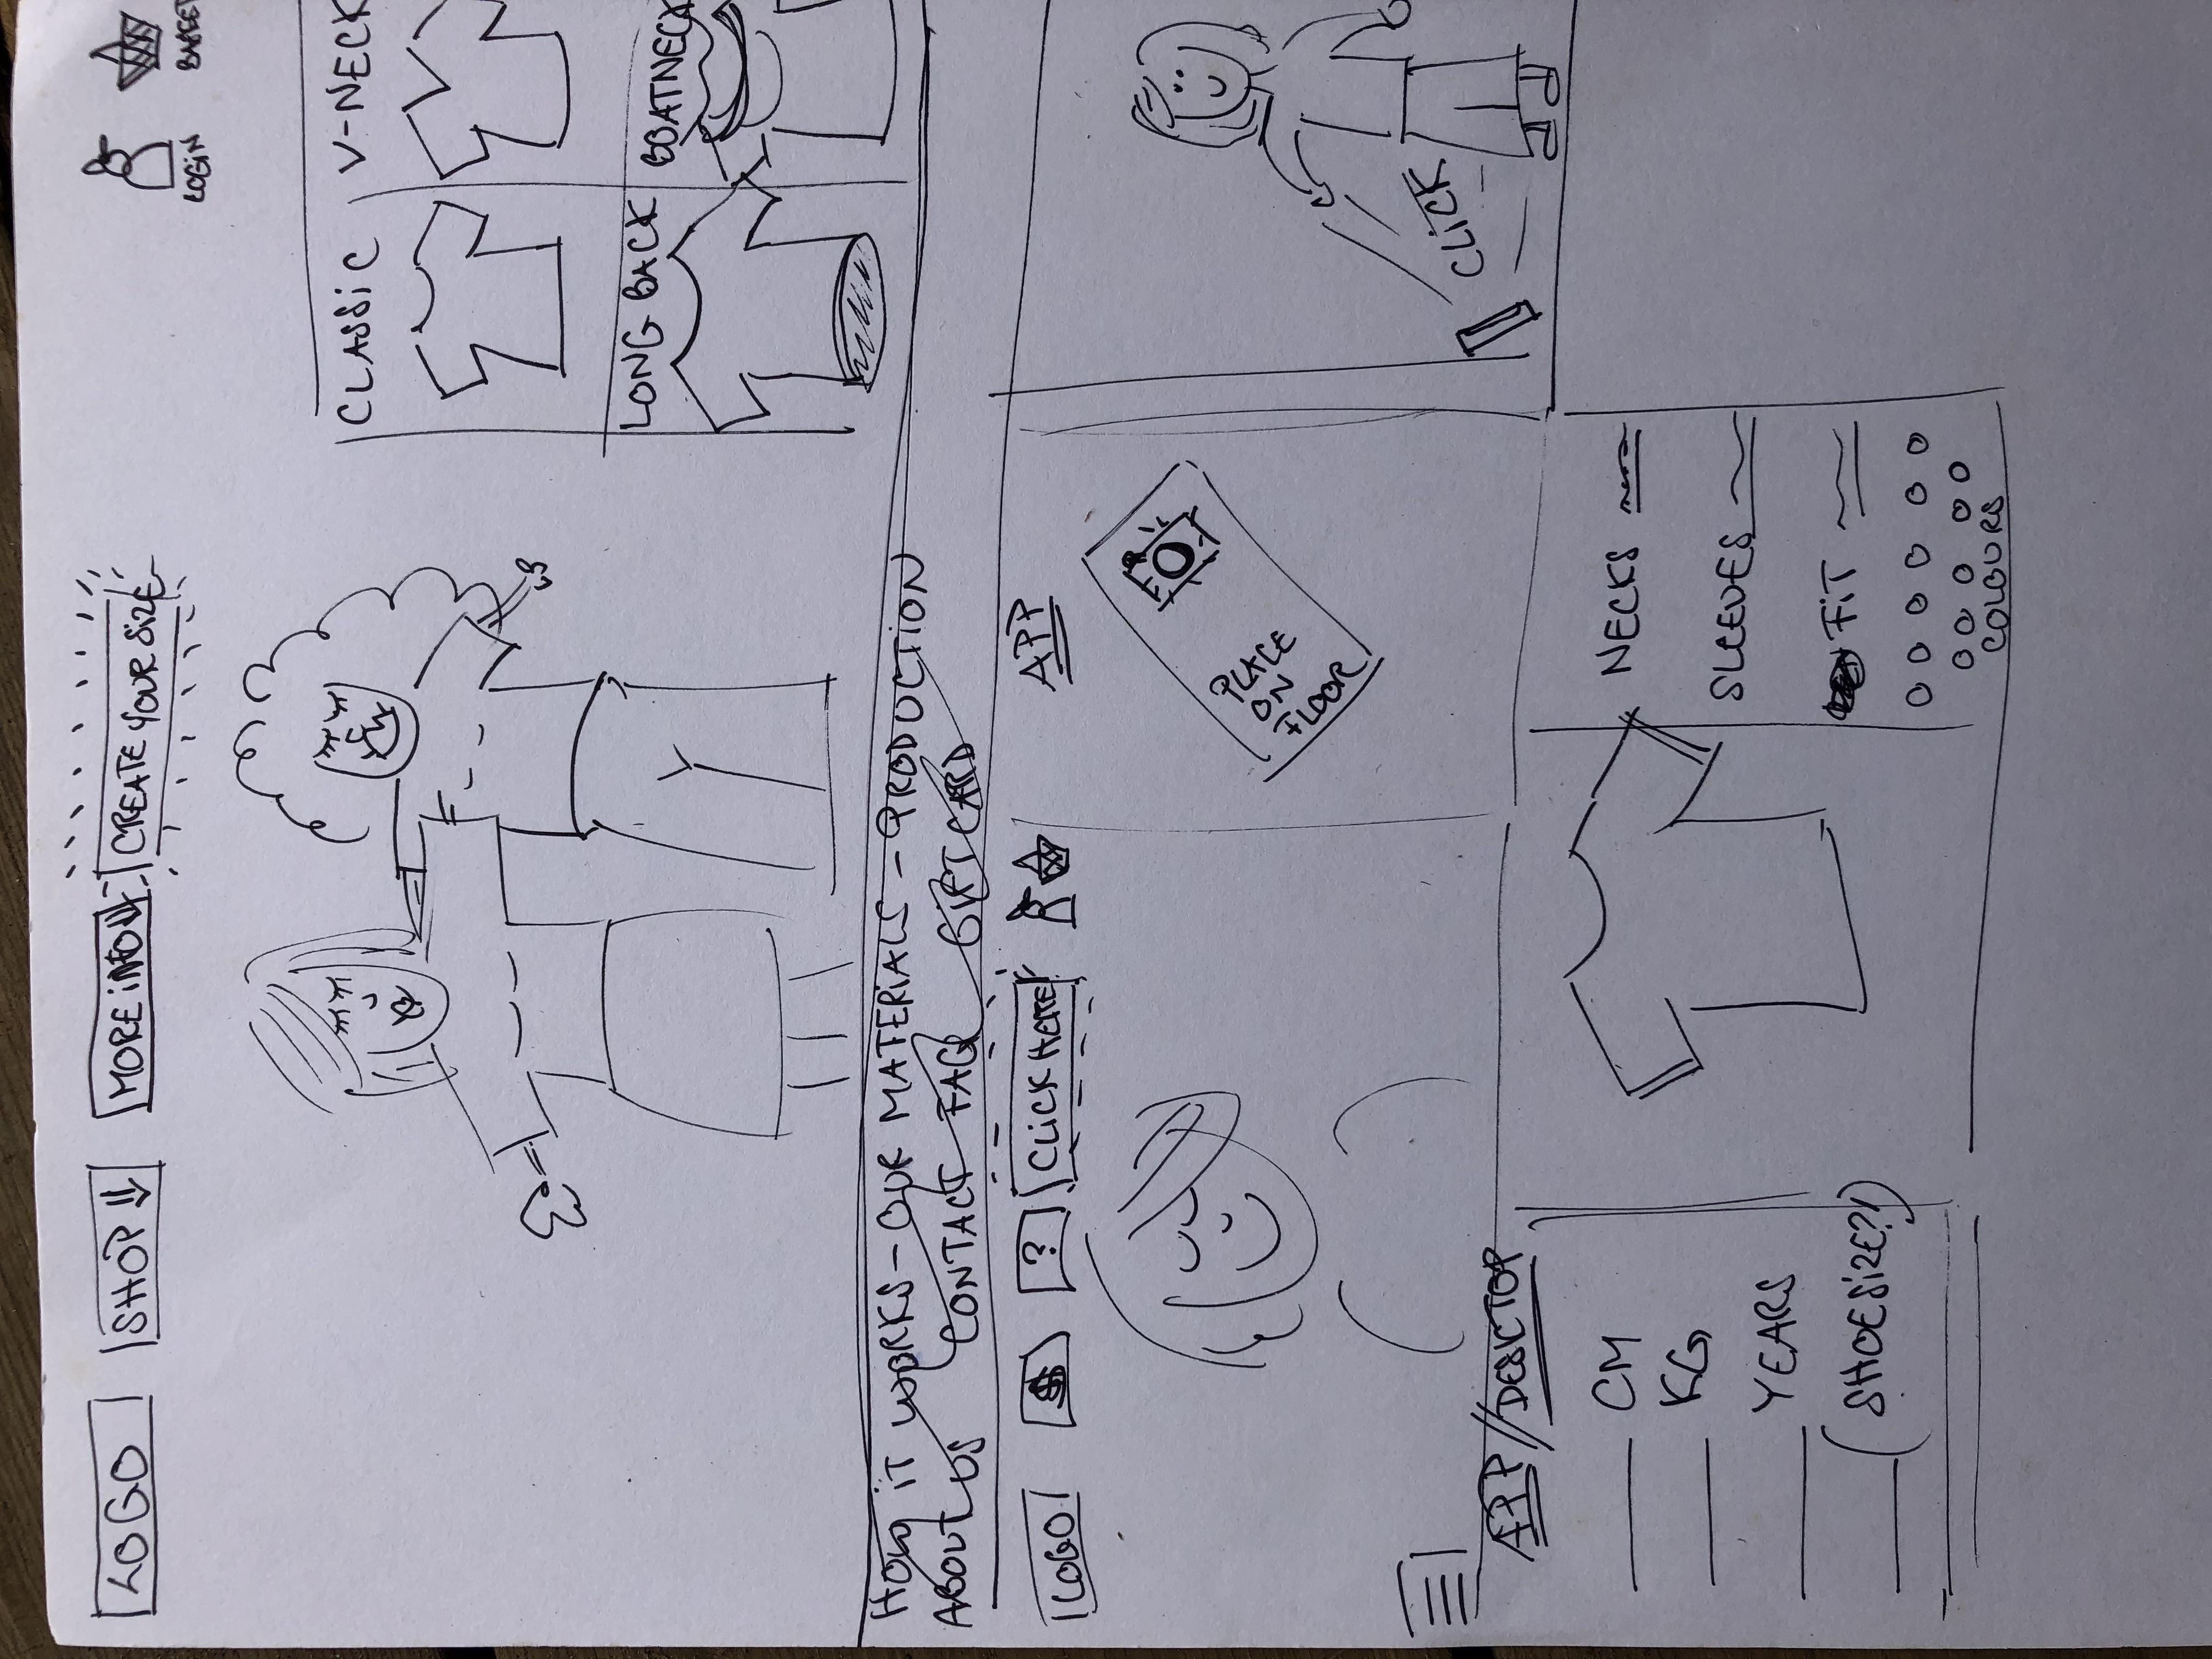 LOGO
SHOP
MORE INFO
CREATE YOUR SIZE
LOGIN
CLASSIC
V-NECK
LONG BACK
BOATNECK
HOW IT WORKS - OUR MATERIALS - PRODUCTION
ABOUT US CONTACT FAQ GIFTCARD
LOGO
$
?
CLICK HERE
APP
PLACE
ON
FLOOR
CLICK
APP // DESKTOP
CM
KG
YEARS
(SHOESIZE?!)
NECKS
SLEEVES
FIT
COLOURS